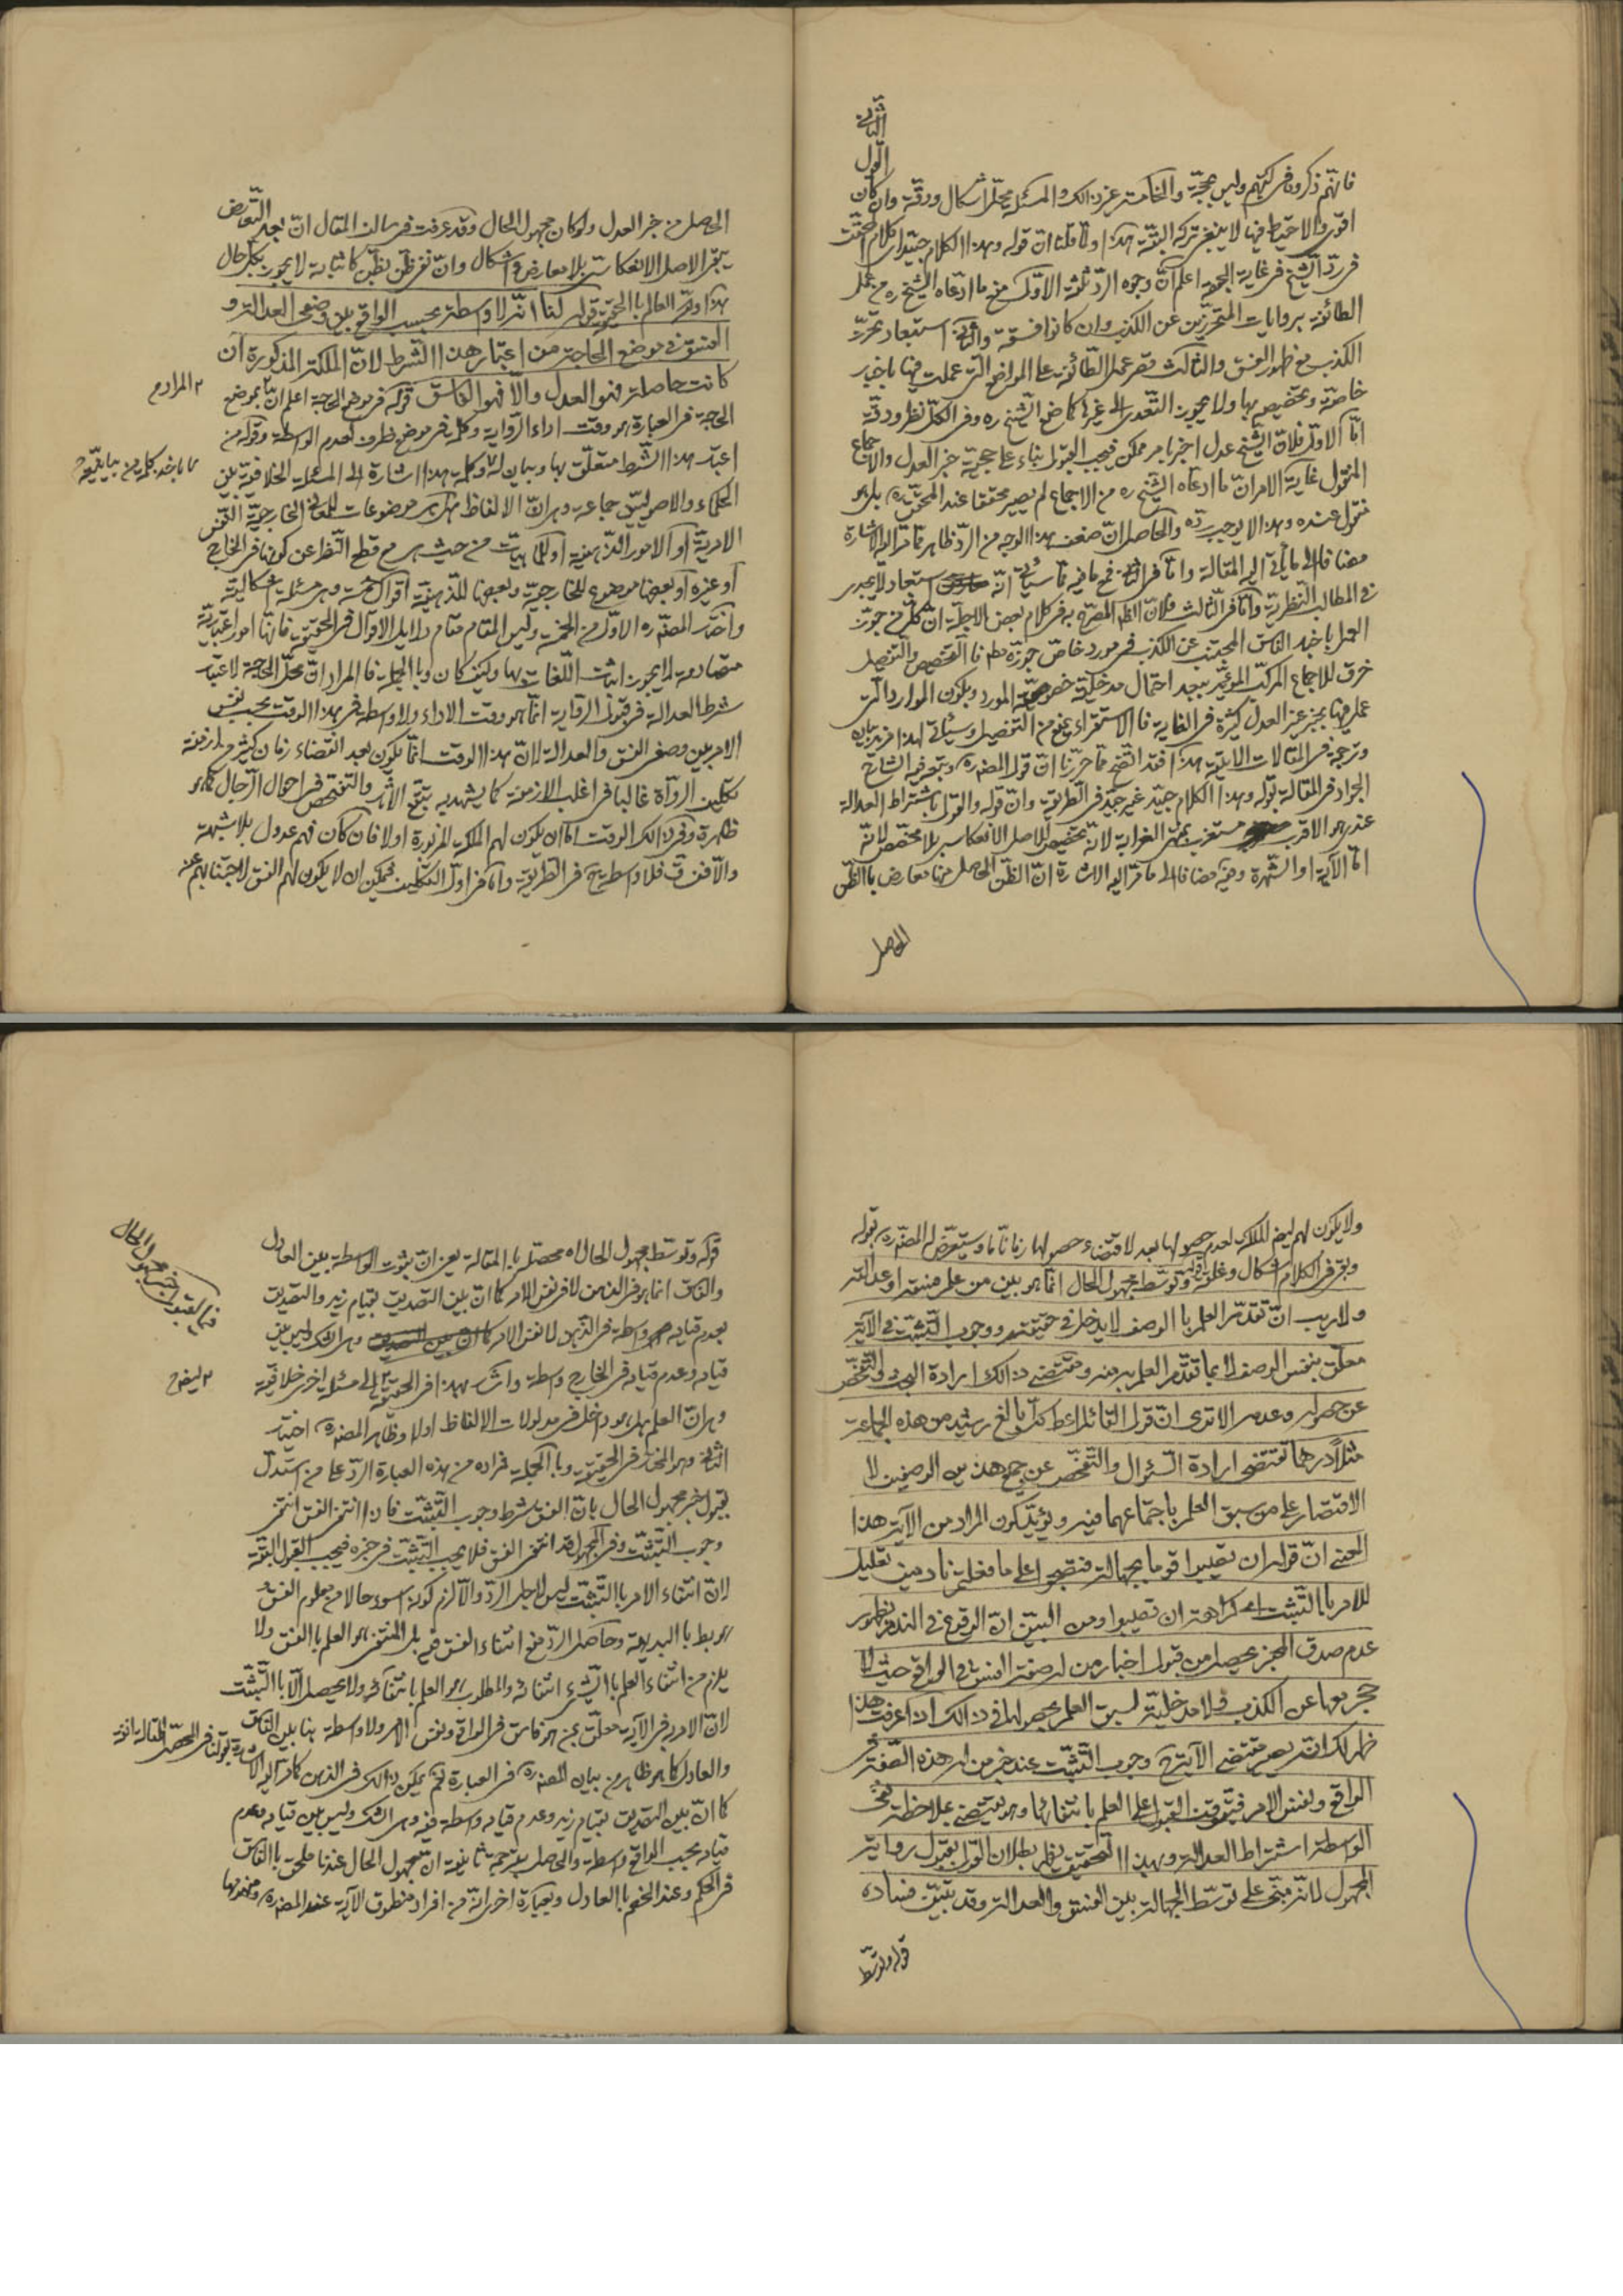 الثانى
الاول
فانهم ذكروا فى كتبهم وليس بحجة والخامسة عن ذلك والمسئلة محل اشكال ودقة وان كان
اقوى والاحتياط فيها لا ينبغى تركه البتة هذا وقلنا ان قوله وهذا الكلام جيد اى كلام المحقق
فى رد الشيخ فى غاية الجودة اعلم ان وجوه الرد ثلثة الاول منع ما ادعاه الشيخ ره من عمل
الطائفة بروايات المتحرزين عن الكذب وان كانوا فسقة والثانى استبعاد تحرز
الكذب مع ظهور الفسق والثالث قصر عمل الطائفة على المواضع التى عملت فيها باخبار
خاصة وتخصيص بها ولا يجوز التعدى الى غيرها كما صنع الشيخ ره وفى الكل نظر ودقة
اما الاول فلان الشيخ عدل اخبر بامر ممكن فيجب القبول بناء على حجية خبر العدل والاجماع
المنقول غاية الامر ان ما ادعاه الشيخ ره من الاجماع لم يصير محققا عند المحقق ره بل هو
منقول عنده وهذا لا يوجب رده والحاصل ان ضعف هذا الوجه من الرد ظاهر مما مر اليه الاشارة
مضافا الى ما يأتى اليه المقالة واما فى الثانى فمع ما فيه مما سيأتى انه استبعاد لا يجرى
فى المطالب النظرية واما فى الثالث فلان الظ المصرح به فى كلام بعض الاجلة ان كل من جوز
العمل باخبار الفاسق المجتنب عن الكذب فى مورد خاص جوزه مطلقا فالتخصيص والتفصيل
خرق للاجماع المركب المؤيد ببعد احتمال مدخلية خصوصية المورد وبكون الموارد التى
عمل فيها بخبر غير العدل كثيرة فى الغاية فالاستقراء يمنع من التفصيل وسيأتى لهذا مزيد بيان
وترجمة فى المقالات الاتية هذا فقد اتضح مما حررنا ان قول المصنف ره وتبعه فيه الشارح
الجواد فى المقالة بقوله وهذا الكلام جيد غير جيد فى الطريقة وان قوله والقول باشتراط العدالة
عندى هو الاقرب مستغرب بمنتهى الغرابة لانه تخصيص للاصل الانعكاسى بلا مخصص لانه
اما الآية او الشهرة وفيه مضافا الى ما مر اليه الاشارة ان الظن الحاصل منها معارض بالظن
الحاصل
الحاصل من خبر العدل ولو كان مجهول الحال وقد عرفت فى سالف المقال ان بعد التعارض
يبقى الاصل الانعكاسى بلا معارض ولا اشكال وان نقض ظن بظن كائنا ما لا يجوز بكل حال
هذا والله العالم بالحق قوله لنا انه لا واسطة بحسب الواقع بين وصفى العدالة و
الفسق فى موضع الحاجة من اعتبار هذا الشرط لان الملكة المذكورة ان
كانت حاصلة فهو العدل والا فهو الفاسق قوله فى موضع الحاجة اعلم ان بموضع
المراد م
الحاجة فى العبارة هو وقت اداء الرواية وكلمة فى موضع ظرف لعدم الواسطة وقوله من
اعتبار هذا الشرط متعلق بها وبيان له وكلمة هذا اشارة الى المسئلة الخلافية بين
الحكماء والاصوليين جماعة وهى ان الالفاظ هل هى موضوعات للمعانى الخارجية النفس
الامرية او الامور الذهنية او للماهيات من حيث هى مع قطع النظر عن كونها فى الخارج
او غيره او بعضها موضوع للخارجية وبعضها للذهنية اقوال خمسة وهى مسئلة اشكالية
واختار المصنف ره الاول من الخمسة وليس المقام مقام دلايل الاقوال فى الحقيقة فانها امور اعتبارية
متصادمة لا يجوز اثبات اللغات بها وكيف كان وبالجملة فالمراد ان محل الحاجة لاعتبار
شرط العدالة فى قبول الرواية انما هو وقت الاداء ولا واسطة فى هذا الوقت بحسب نفس
الامر بين وصفى الفسق والعدالة لان هذا الوقت انما يكون بعد انقضاء زمان كثير من ازمنة
تكليف الرواة غالبا فى اغلب الازمنة كما يشهد به تتبع الآثار والتفحص فى احوال الرجال كما هو
ظهره وفى ذلك الوقت اما ان يكون لهم الملكة المزبورة اولا فان كان فهم عدول بلا شبهة
والا ففساق فلا واسطة ح فى الطريقة واما فى اول التكليف فيمكن ان لا يكون لهم الفسق لاجتنابهم عنه
ولا يكون لهم ايض الملكة لعدم حصولها بعد لاقتضاء حصولها زمانا ما وسيتعرض له المصنف ره بقوله
وبقى فى الكلام اشكال وغلبة قوله وتوسط مجهول الحال انما هو بين من علم فسقه او عدالته
ولا ريب ان تقدم العلم بالوصف لا يدخل فى حقيقته ووجوب التثبت فى الآية
معلق بنفس الوصف لا بما تقدم العلم به منه ومقتضى ذلك ارادة البحث والتفحص
عن حصوله وعدمه الا ترى ان قول القائل اعط كل بالغ رشيد من هذه الجماعة
مثلا درهما تقتضى ارادة السؤال والتفحص عن جمع هذين الوصفين لا
الاقتصار على من سبق العلم باجتماعهما فيه ويؤيد كون المراد من الآية هذا
المعنى ان قوله ان تصيبوا قوما بجهالة فتصبحوا على ما فعلتم نادمين تعليل
للامر بالتثبت اى كراهة ان تصيبوا ومن البين ان الوقوع فى الندم بظهور
عدم صدق المخبر يحصل من قبول اخبار من له صفة الفسق فى الواقع حيث لا
حجر معها عن الكذب فلا مدخلية لسبق العلم بحصولها فى ذلك اذا عرفت هذا
ظهر لك انه يصير مقتضى الآية ح وجوب التثبت عند خبر من له هذه الصفة فى
الواقع ونفس الامر فيتوقف القبول على العلم بانتفائها وهو يقتضى بملاحظة نفى
الواسطة اشتراط العدالة وبهذا التحقيق يظهر بطلان القول بقبول رواية
المجهول لانه مبنى على توسط الجهالة بين الفسق والعدالة وقد تبين فساده
قوله وتوسط
قوله وتوسط مجهول الحال اه محصل بالمقالة يعنى ان ثبوت الواسطة بين العادل
والفاسق انما هو فى الذهن لا فى نفس الامر كما ان بين التصديق بقيام زيد والتصديق
بعدم قيامه واسطة فى الذهن لا نفس الامر وهى الشك وليس بين
قيامه وعدم قيامه فى الخارج واسطة واشار بهذا فى الحقيقة الى مسئلة اخرى خلافية
م ايض
وهى ان العلم هل هو داخل فى مدلولات الالفاظ اولا وظاهر المصنف ره اختيار
الثانى وهو المختار فى الحقيقة وبالجملة مراده من هذه العبارة الرد على من استدل
بقبول خبر مجهول الحال بان الفسق شرط وجوب التثبت فاذا انتفى الفسق انتفى
وجوب التثبت وفى المجهول قد انتفى الفسق فلا يجب التثبت فى خبره فيجب القبول البتة
لان انتفاء الامر بالتثبت ليس لاجل الرد والا لزم كونه اسوء حالا من معلوم الفسق و
هو بط بالبديهة وحاصل الرد منع انتفاء الفسق فيه بل المنتفى هو العلم بالفسق ولا
يلزم من انتفاء العلم بالشىء انتفائه والمطلوب هو العلم بانتفائه ولا يحصل الا بالتثبت
لان الامر فى الآية معلق بمن هو فاسق فى الواقع ونفس الامر ولا واسطة هنا بين الفاسق
والعادل كما هو ظاهر من بيان المصنف ره فى العبارة نعم يمكن ذلك فى الذهن كما مر اليه الاشارة
كما ان بين التصديق بقيام زيد وعدم قيامه واسطة فيه وهى الشك وليس بين قيامه وعدم
قيامه بحسب الواقع واسطة والحاصل بترجمة ثانية ان مجهول الحال عندنا ملحق بالفاسق
فى الحكم وعند الخصم بالعادل وبعبارة اخرى انه من افراد منطوق الآية عند المصنف ره ومفهومها